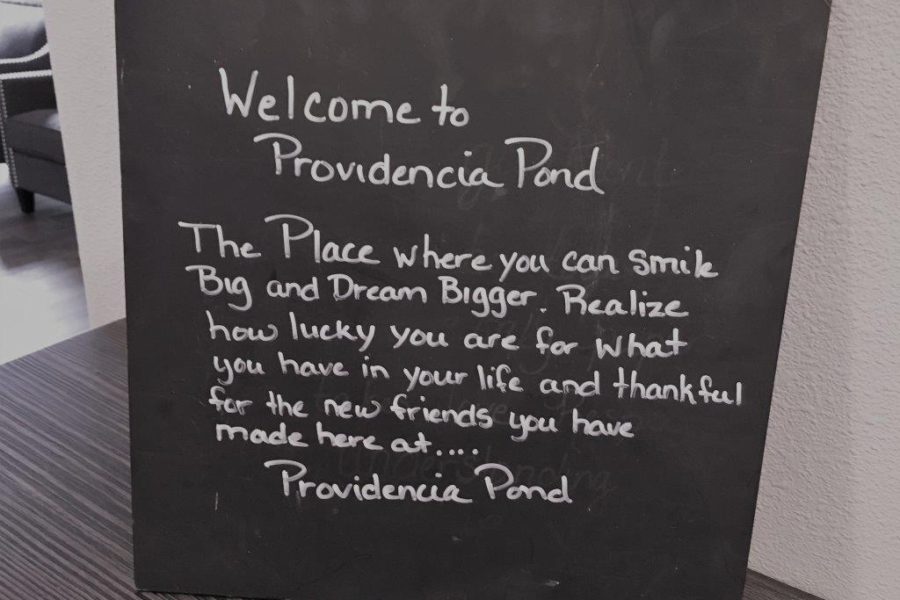 Welcome to
Providencia Pond
The Place where you can smile
Big and Dream Bigger. Realize
how lucky you are for what
you have in your life and thankful
for the new friends you have
made here at....
Providencia Pond